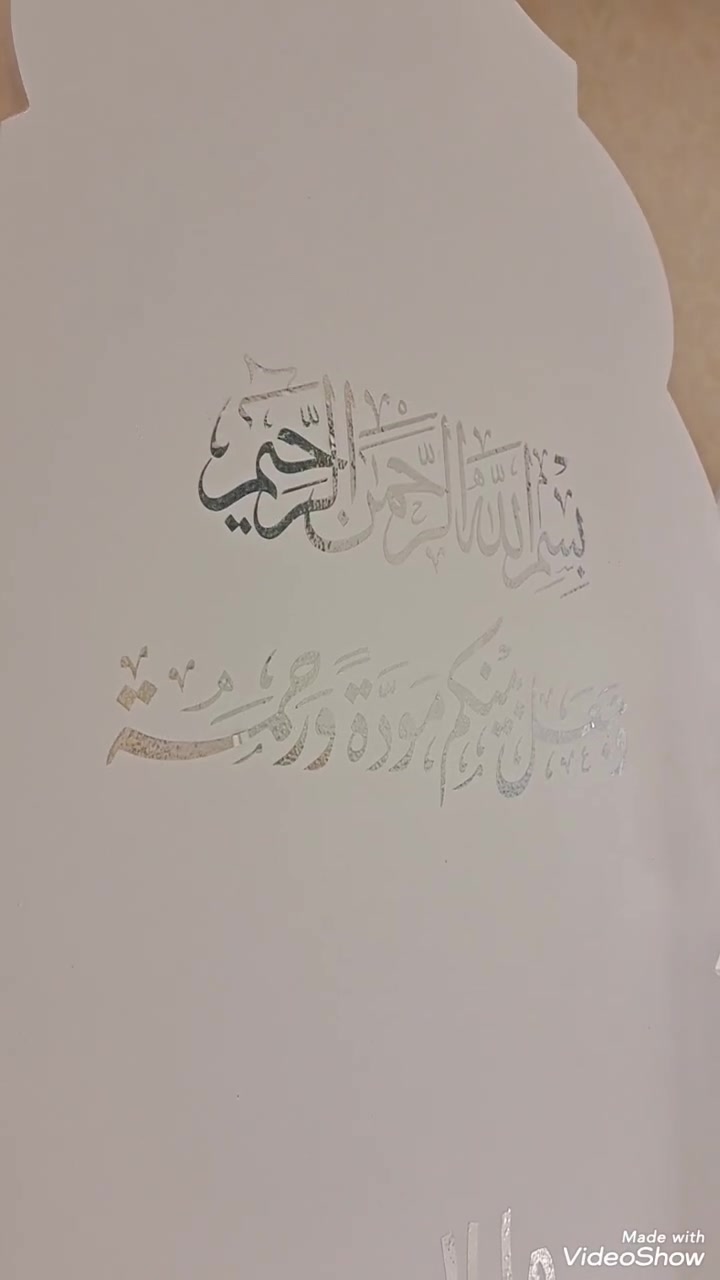 بِسْمِ اللَّهِ الرَّحْمَنِ الرَّحِيمِ
وجعل بينكم مَوَدَّةً وَرَحْمَةً
Made with
VideoShow